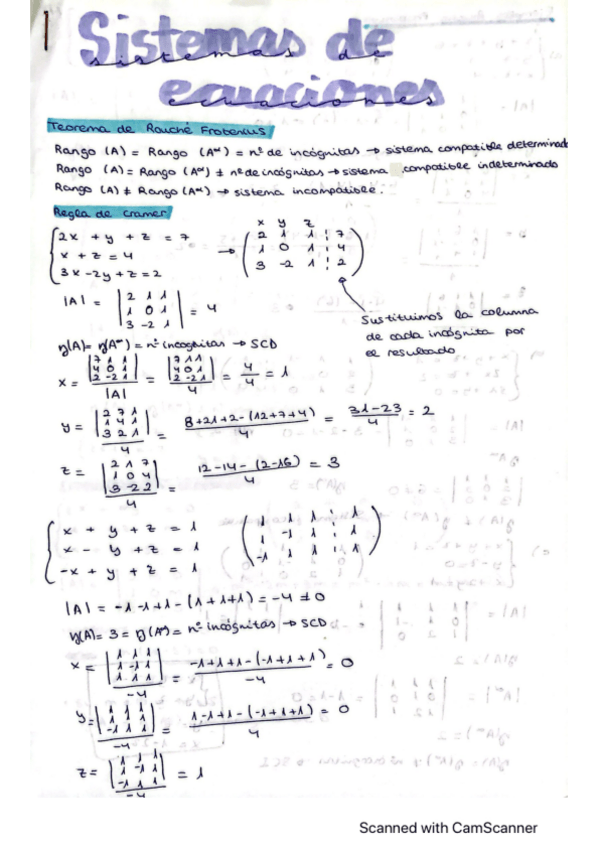 1
Sistemas de
ecuaciones
Teorema de Rouché Frobenius
Rango (A) = Rango (A*) = nº de incógnitas → sistema compatible determinad
Rango (A) = Rango (A*) ≠ nº de incógnitas → sistema compatible indeterminado
Rango (A) ≠ Rango (A*) → sistema incompatible.
Regla de cramer
2x + y + z = 7
x + z = 4
3x - 2y + z = 2
→
x y z
2 1 1 7
1 0 1 4
3 -2 1 2
|A| = | 2 1 1 |
| 1 0 1 | = 4
| 3 -2 1 |
Sustituimos la columna
de cada incógnita por
el resultado
rg(A) = rg(A*) = nº incognitas → SCD
x = |7 1 1; 4 0 1; 2 -2 1| / |A| = |7 1 1; 4 0 1; 2 -2 1| / 4 = 4/4 = 1
y = |2 7 1; 1 4 1; 3 2 1| / 4 = 8+21+2-(12+7+4) / 4 = 31-23 / 4 = 2
z = |2 1 7; 1 0 4; 3 -2 2| / 4 = 12-14-(2-16) / 4 = 3
x + y + z = 1
x - y + z = 1
-x + y + z = 1
1 1 1 1
1 -1 1 1
-1 1 1 1
|A| = -1-1+1-(1+1+1) = -4 ≠ 0
rg(A) = 3 = rg(A*) = nº incógnitas → SCD
x = |1 1 1; 1 -1 1; 1 1 1| / -4 = -1+1+1-(-1+1+1) / -4 = 0
y = |1 1 1; 1 1 1; -1 1 1| / -4 = 1-1+1-(-1+1+1) / 4 = 0
z = |1 1 1; 1 -1 1; -1 1 1| / -4 = 1
Scanned with CamScanner